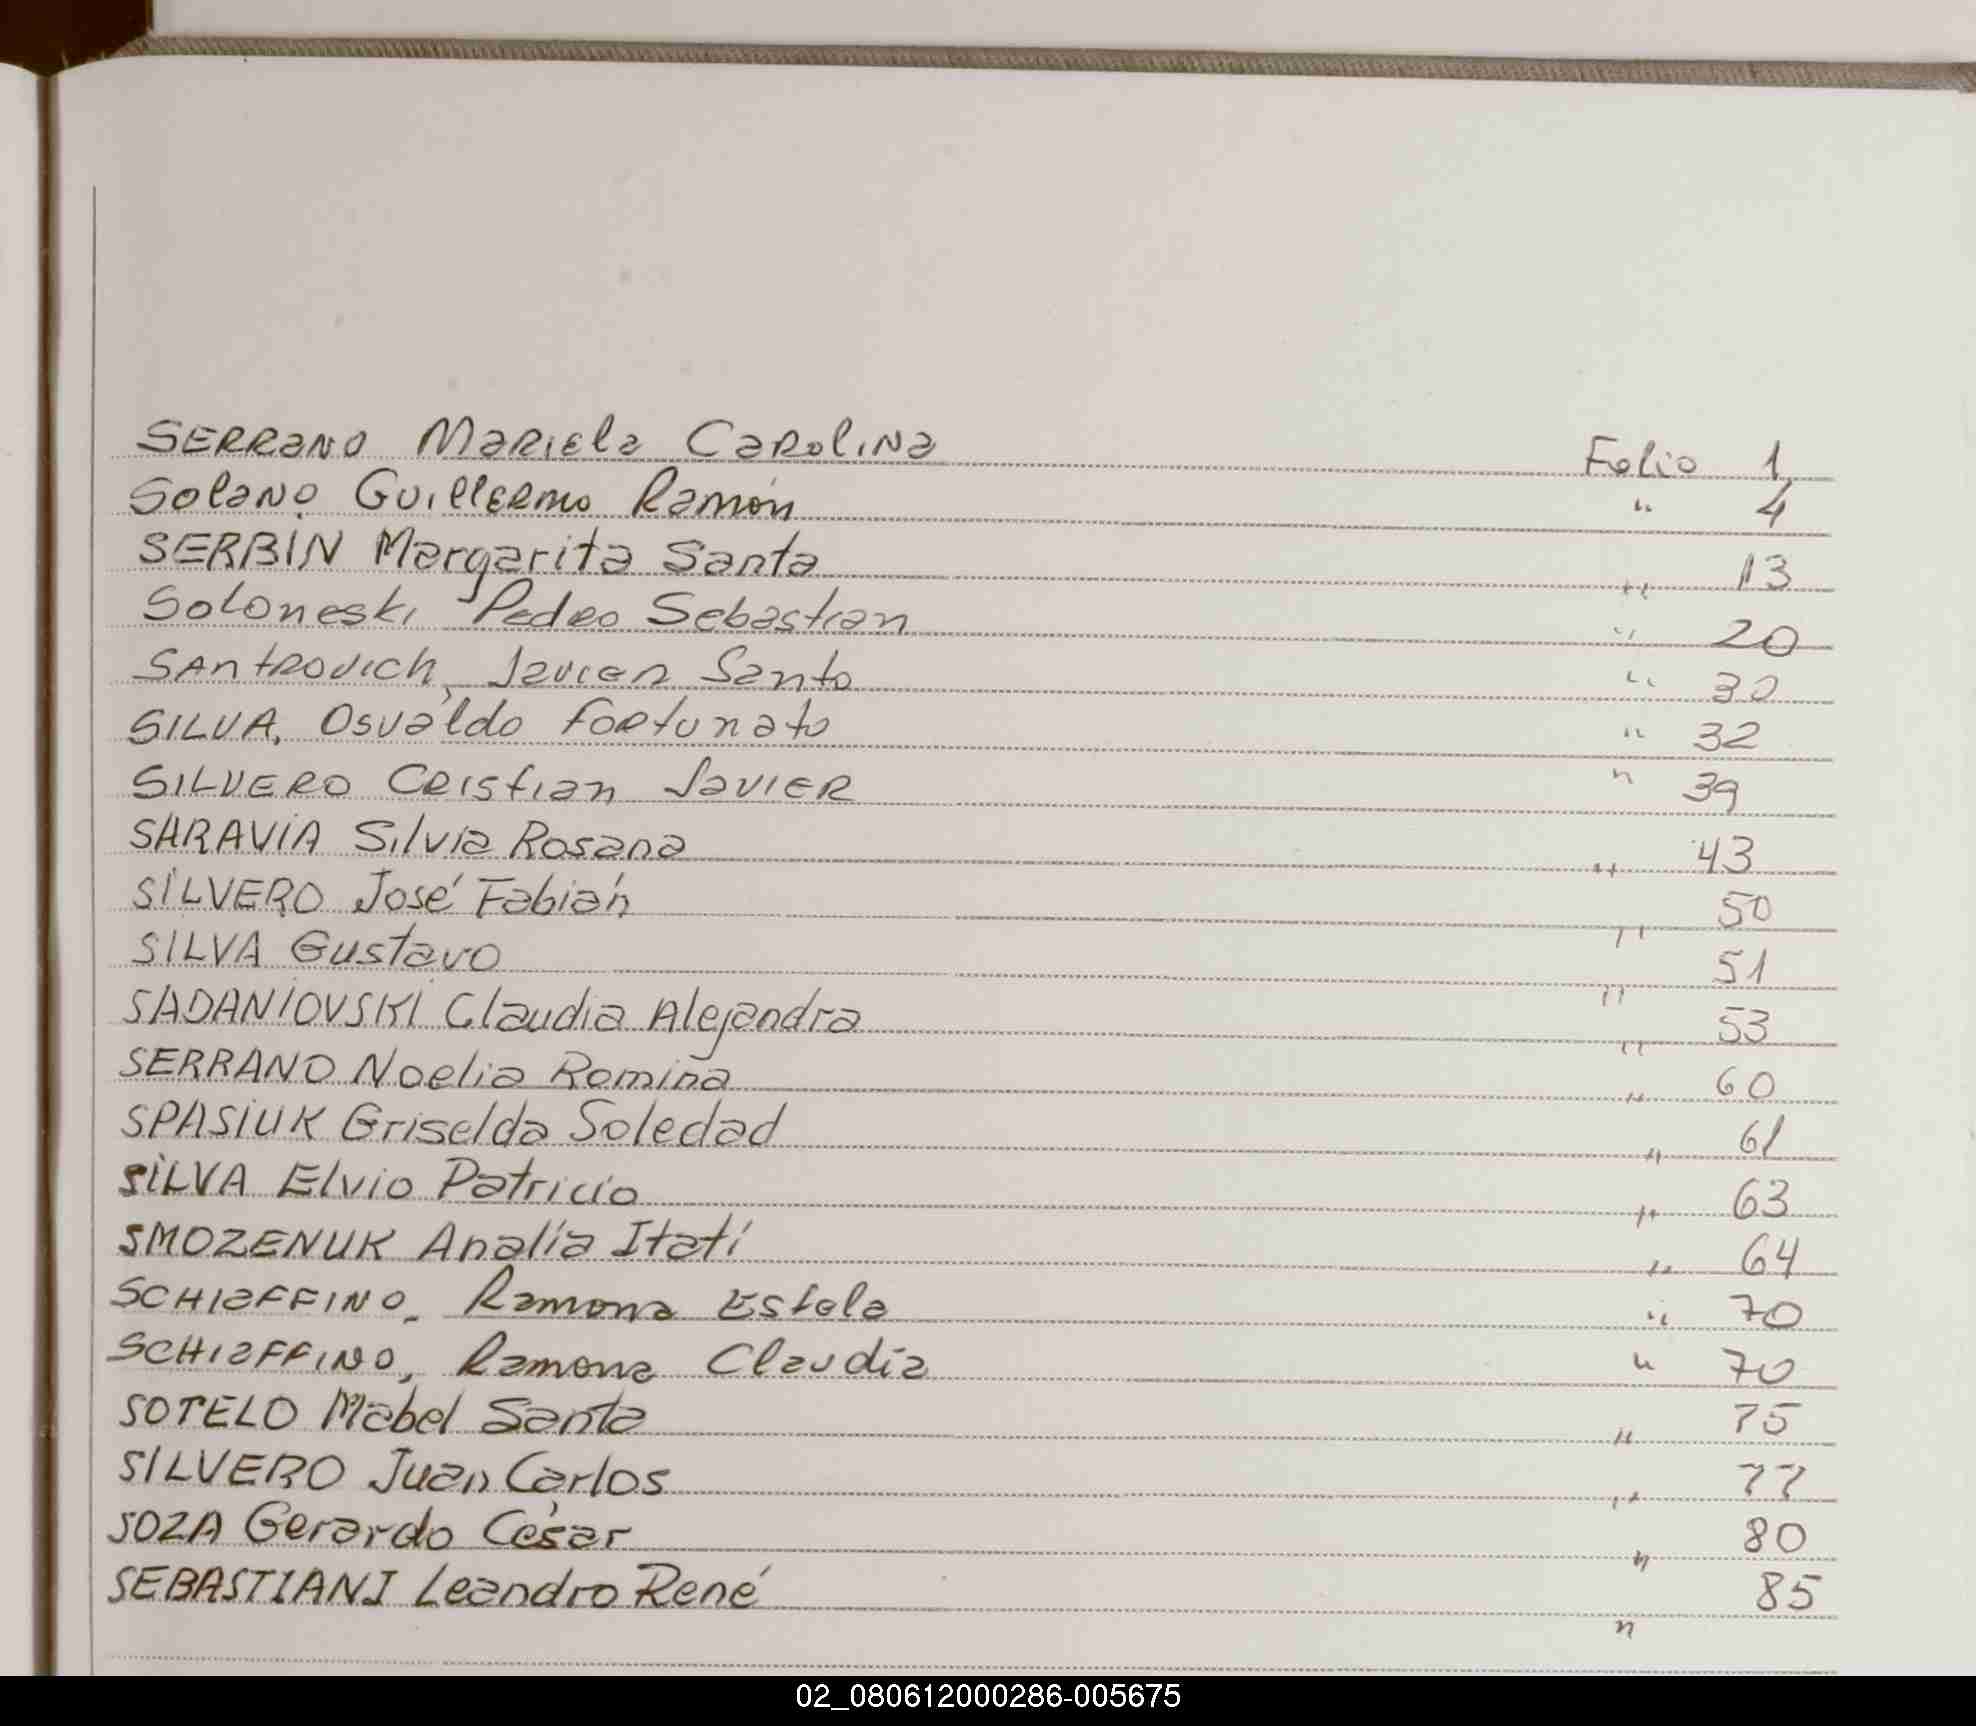 SERRANO Mariela Carolina Folio 1
Solano Guillermo Ramón " 4
SERBIN Margarita Santa " 13
Soloneski Pedro Sebastian " 20
SANTROVICH, Javier Santo " 30
SILVA, Osvaldo Fortunato " 32
SILVERO Cristian Javier " 39
SARAVIA Silvia Rosana " 43
SILVERO José Fabián " 50
SILVA Gustavo " 51
SADANIOVSKI Claudia Alejandra " 53
SERRANO Noelia Romina " 60
SPASIUK Griselda Soledad " 61
SILVA Elvio Patricio " 63
SMOZENUK Analía Itatí " 64
SCHIAFFINO, Ramona Estela " 70
SCHIAFFINO, Ramona Claudia " 70
SOTELO Mabel Santa " 75
SILVERO Juan Carlos " 77
SOZA Gerardo César " 80
SEBASTIANI Leandro René " 85
02_080612000286-005675